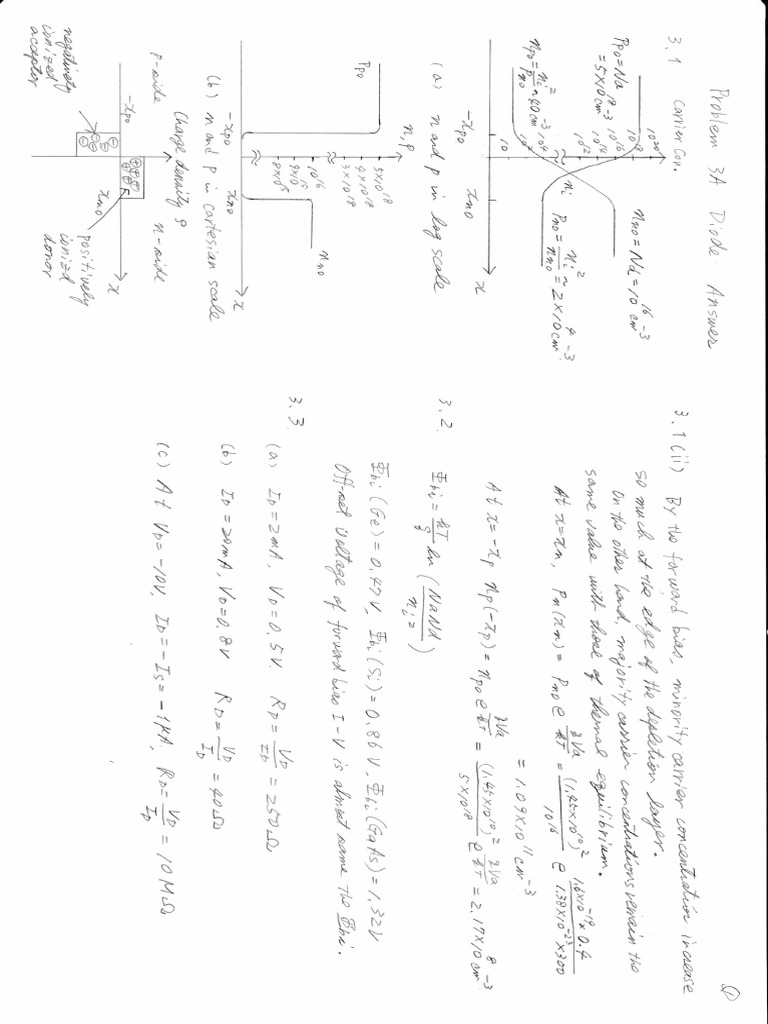 ①
Problem 3A Diode Answer
3.1 Carrier Con.
Ppo=Na
=5×10¹⁸cm⁻³
npo=ni²/Ppo≃40cm⁻³
10²⁰
10¹⁸
10¹⁶
10¹⁴
10¹²
10⁴
10²
10
nno=Nd=10¹⁶cm⁻³
ni
Pno=ni²/nno≃2×10⁴cm⁻³
-xpo
xno
x
(a) n and p in log scale
n,p
Ppo
5×10¹⁸
4×10¹⁸
3×10¹⁸
10¹⁶
9×10¹⁵
8×10¹⁵
nno
-xpo
xno
x
(b) n and p in cartesian scale
Charge density ρ
p-side
n-side
-xpo
xno
x
⊖ ⊖ ⊖ ⊖
⊕ ⊕ ⊕ ⊕
negatively
ionized
acceptor
positively
ionized
donor
3.1 (ii) By the forward bias, minority carrier concentration increase
so much at the edge of the depletion layer.
On the other hand, majority carrier concentrations remain the
same value with those of thermal equilibrium.
At x=xn, Pn(xn)=Pno e^(qVa/kT)=(1.45×10¹⁰)²/10¹⁶ e^(1.6×10⁻¹⁹×0.4/1.38×10⁻²³×300)
=1.09×10¹¹cm⁻³
At x=-xp np(-xp)=npo e^(qVa/kT)=(1.45×10¹⁰)²/5×10¹⁸ e^(qVa/kT)=2.17×10⁸cm⁻³
3.2. Φbi=kT/q ln(NaNd/ni²)
Φbi(Ge)=0.47V, Φbi(Si)=0.86V, Φbi(GaAs)=1.32V
Off-set voltage of forward bias I-V is almost same the Φbi.
3.3
(a) ID=2mA, VD=0.5V RD=VD/ID=250Ω
(b) ID=20mA, VD=0.8V RD=VD/ID=40Ω
(c) At VD=-10V, ID=-Is=-1μA, RD=VD/ID=10MΩ